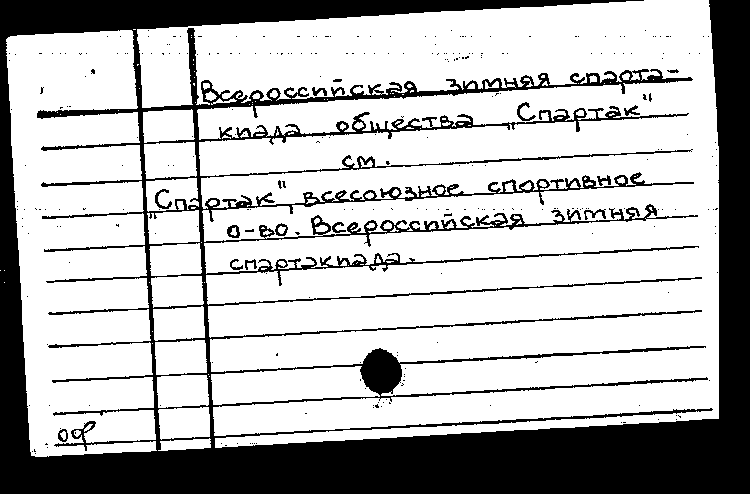 Всероссийская зимняя спарта-
киада общества „Спартак"
см.
„Спартак", всесоюзное спортивное
о-во. Всероссийская зимняя
спартакиада.